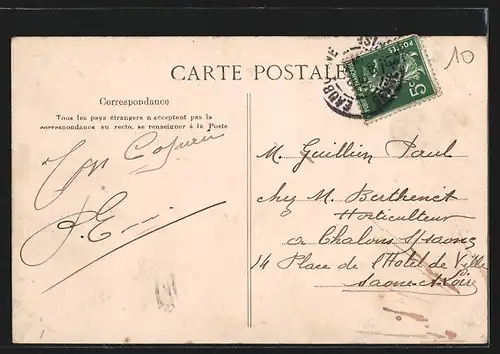 10
CARTE POSTALE
POSTES
5
Correspondance
Tous les pays étrangers n'acceptent pas la
correspondance au recto, se renseigner à la Poste
M. Guillien Paul
chez M. Berthenet
Horticulteur
a Chalons s/saone
14 Place de l'Hotel de Ville
Saone et Loire